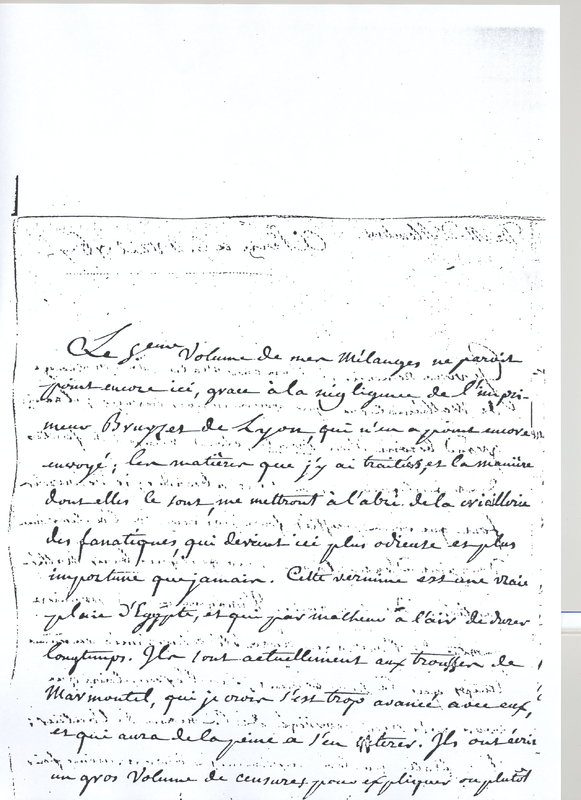 Le 5.eme Volume de mes Mélanges ne paroit
point encore ici, grace à la négligence de l'impri-
meur Bruyset de Lyon, qui n'en a point encore
envoyé; les matières que j'y ai traitées, et la manière
dont elles le sont, me mettront à l'abri de la criaillerie
des fanatiques, qui devient ici plus odieuse et plus
importune que jamais. Cette vermine est une vraie
plaie d'Egypte, et qui par malheur a l'air de durer
longtemps. Ils sont actuellement aux trousses de
Marmontel, qui je crois s'est trop avancé avec eux,
et qui aura de la peine à s'en tirer. Ils ont écrit
un gros Volume de censures, pour expliquer ou plutôt